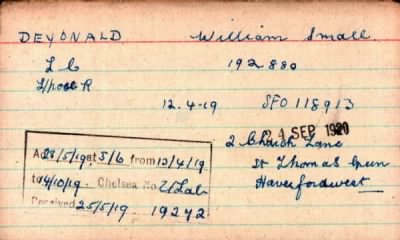 DEYONALD William Small
L C 192880
L/pool R
12.4-19 SFO 118913
24 SEP 1920
2 Church Lane
A 28/5/19 at 5/6 from 13/4/19
St Thomas Green
to 4/10/19. Chelsea No
Haverfordwest
Received 25/5/19 19242